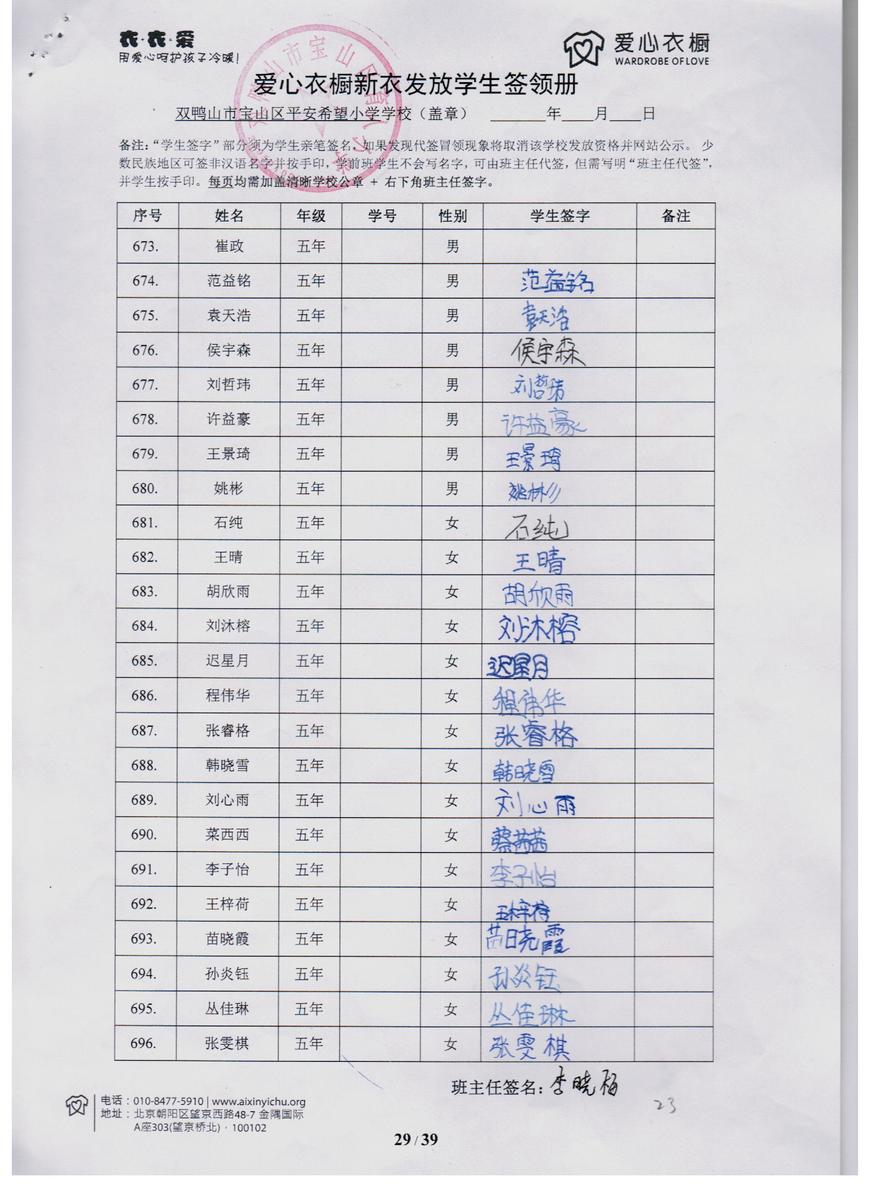 衣·衣·爱
用爱心呵护孩子冷暖!
爱心衣橱
WARDROBE OF LOVE
爱心衣橱新衣发放学生签领册
双鸭山市宝山区平安希望小学学校（盖章） ______年____月____日
备注：“学生签字”部分须为学生亲笔签名，如果发现代签冒领现象将取消该学校发放资格并网站公示。 少
数民族地区可签非汉语名字并按手印，学前班学生不会写名字，可由班主任代签，但需写明“班主任代签”，
并学生按手印。每页均需加盖清晰学校公章 + 右下角班主任签字。
序号 姓名 年级 学号 性别 学生签字 备注
673. 崔政 五年 男
674. 范益铭 五年 男 范益铭
675. 袁天浩 五年 男 袁天浩
676. 侯宇森 五年 男 侯宇森
677. 刘哲玮 五年 男 刘哲玮
678. 许益豪 五年 男 许益豪
679. 王景琦 五年 男 王景琦
680. 姚彬 五年 男 姚彬
681. 石纯 五年 女 石纯
682. 王晴 五年 女 王晴
683. 胡欣雨 五年 女 胡欣雨
684. 刘沐榕 五年 女 刘沐榕
685. 迟星月 五年 女 迟星月
686. 程伟华 五年 女 程伟华
687. 张睿格 五年 女 张睿格
688. 韩晓雪 五年 女 韩晓雪
689. 刘心雨 五年 女 刘心雨
690. 菜西西 五年 女 蔡茜茜
691. 李子怡 五年 女 李子怡
692. 王梓荷 五年 女 王梓荷
693. 苗晓霞 五年 女 苗晓霞
694. 孙炎钰 五年 女 孙炎钰
695. 丛佳琳 五年 女 丛佳琳
696. 张雯棋 五年 女 张雯棋
班主任签名：李晓梅
23
电话：010-8477-5910 | www.aixinyichu.org
地址：北京朝阳区望京西路48-7 金隅国际
A座303(望京桥北)·100102
29 / 39